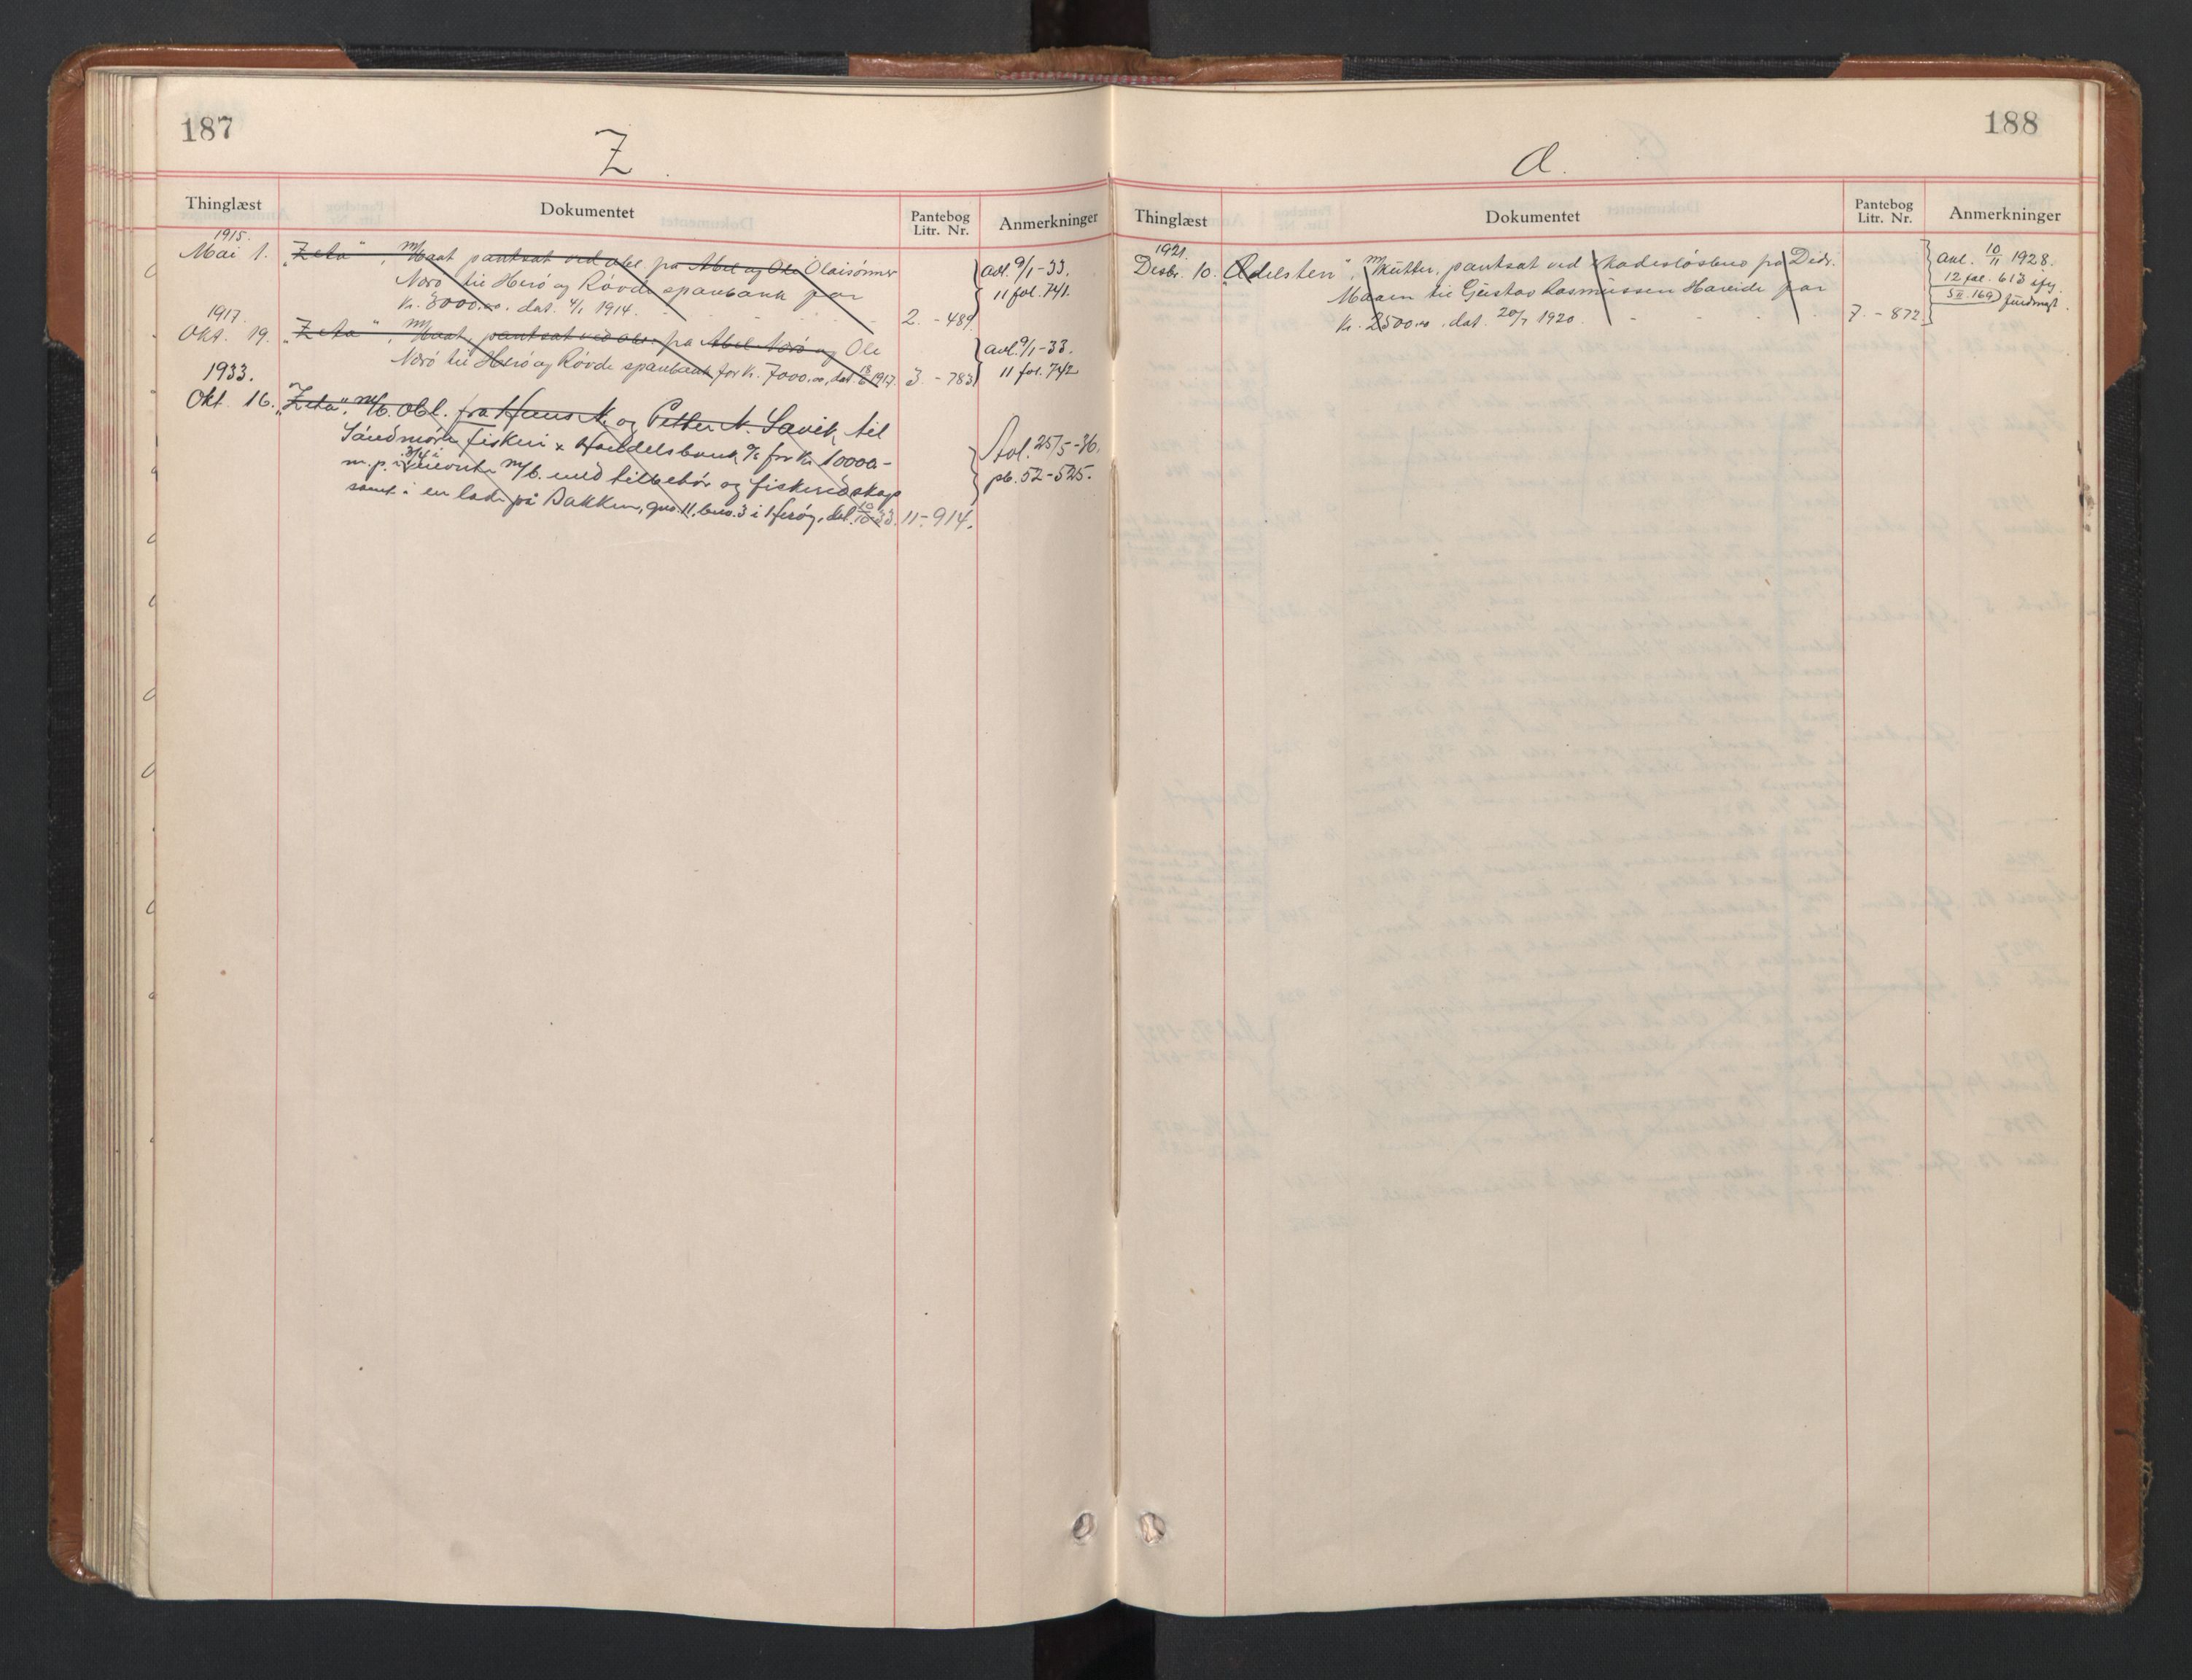 187
Z.
Thinglæst
Dokumentet
Pantebog
Litr. Nr.
Anmerkninger
1915.
Mai 1. „Zeta", M/Baat pantsat ved obl. fra Abel og Ole Olaisönner
Norö til Herö og Rövde sparebank for
Kr. 8000.00. dat. 4/1 1914. 2. - 489.
avl. 9/1-33.
11 fol. 741.
1917.
Okt. 19. „Zeta", M/Baat, pantsat ved obl. fra Abel Norö og Ole
Norö til Herö og Rövde sparebank for kr. 7000.00, dat. 18/6 1917. 3. - 783
avl. 9/1-33.
11 fol. 742
1933.
Okt. 16. „Zeta", M/b. obl. fra Hans N. og Petter N. Savik til
Söndmörke fiskeri & Handelsbank A/S for Kr. 10000.-
m. p. i 3/4 i M/b. med tilbehör og fiskeredskap
samt i en lade på Bakken, gno. 11, bno. 3 i Heröy, dat. 10/10 33. 11 - 914.
Avl. 25/5-36.
pb. 52-525.
188
Æ.
Thinglæst
Dokumentet
Pantebog
Litr. Nr.
Anmerkninger
1921.
Desbr. 10. „Ædelsten", M/Kutter, pantsat ved skadeslösbrev fra Didr.
Maaen til Gustav Rasmussen Hareide for
Kr. 2500.00, dat. 20/7 1920. 7. - 872
avl. 10/11 1928.
12 fol. 613 ifg.
§ II. 169)